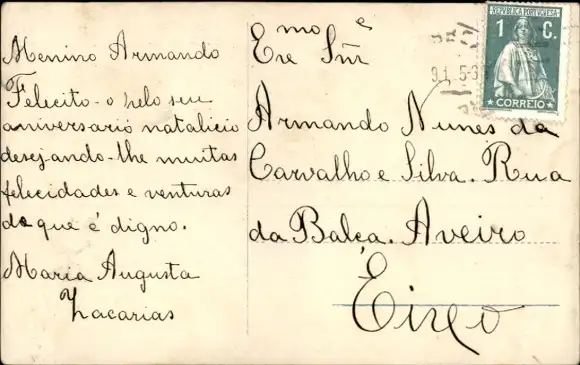 Menino Armando
Felecito-o pelo seu
aniversario natalicio
desejando-lhe muitas
felecidades e venturas
de que é digno.
Maria Augusta
Zacarias
Exmo e
Sñr
Armando Nunes da
Carvalho e Silva. Rua
da Balça. Aveiro
Eixo
REPUBLICA PORTUGUESA
1 C.
CORREIO